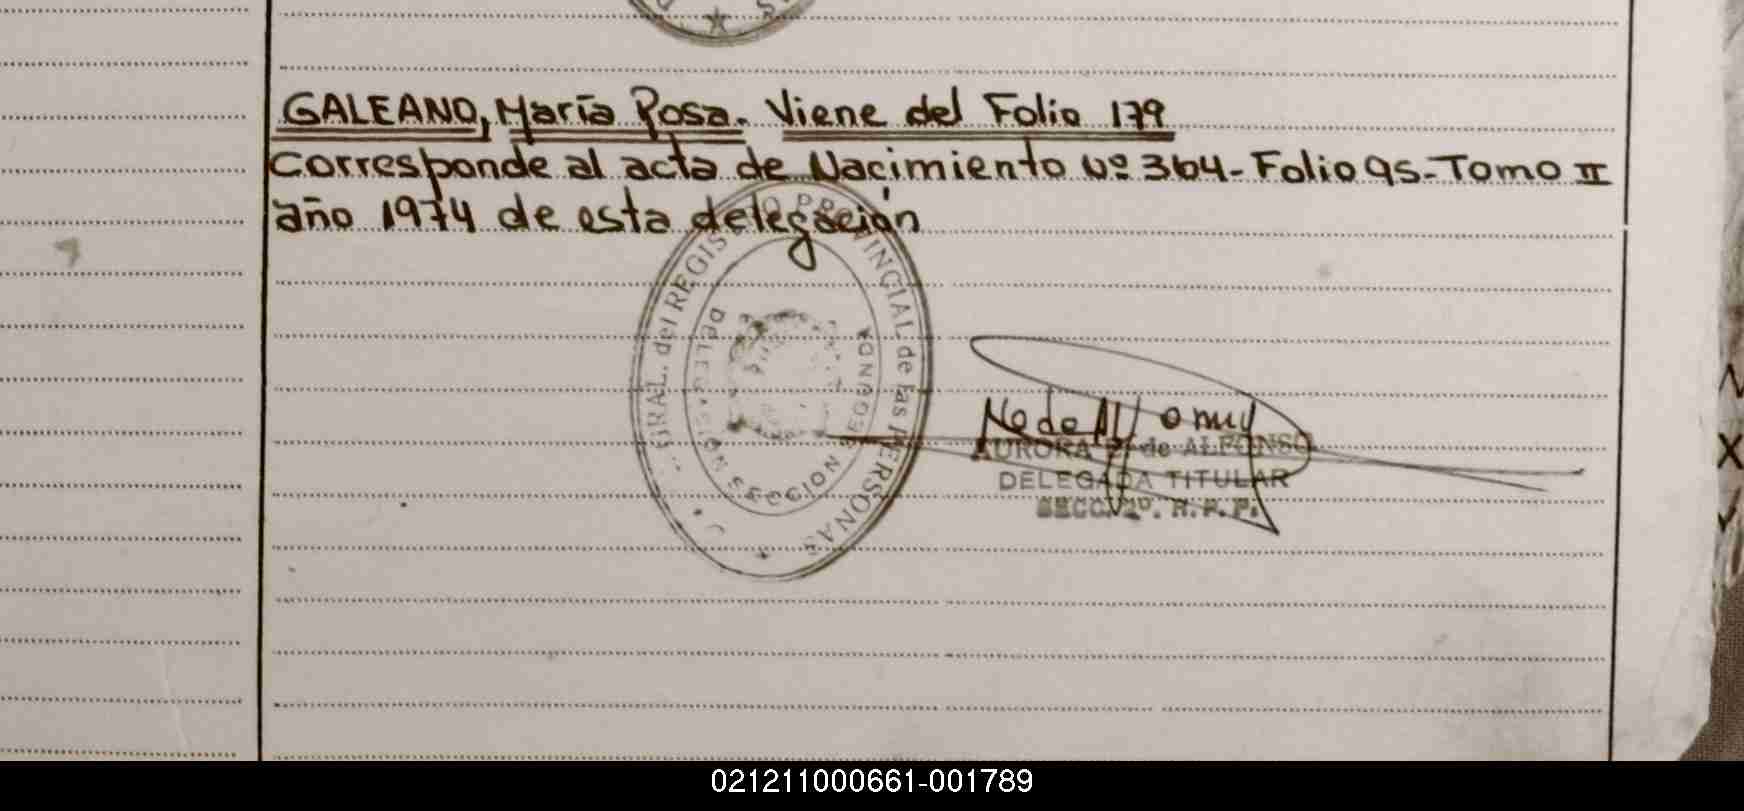 GALEANO, María Rosa. Viene del Folio 179
Corresponde al acta de Nacimiento Nº 364-Folio 95-Tomo II
año 1974 de esta delegación
GRAL. del REGISTRO PROVINCIAL de las PERSONAS
DELEGACION SECCION SEGUNDA
AURORA de ALFONSO
DELEGADA TITULAR
SECC. 2º. R. P. P.
021211000661-001789